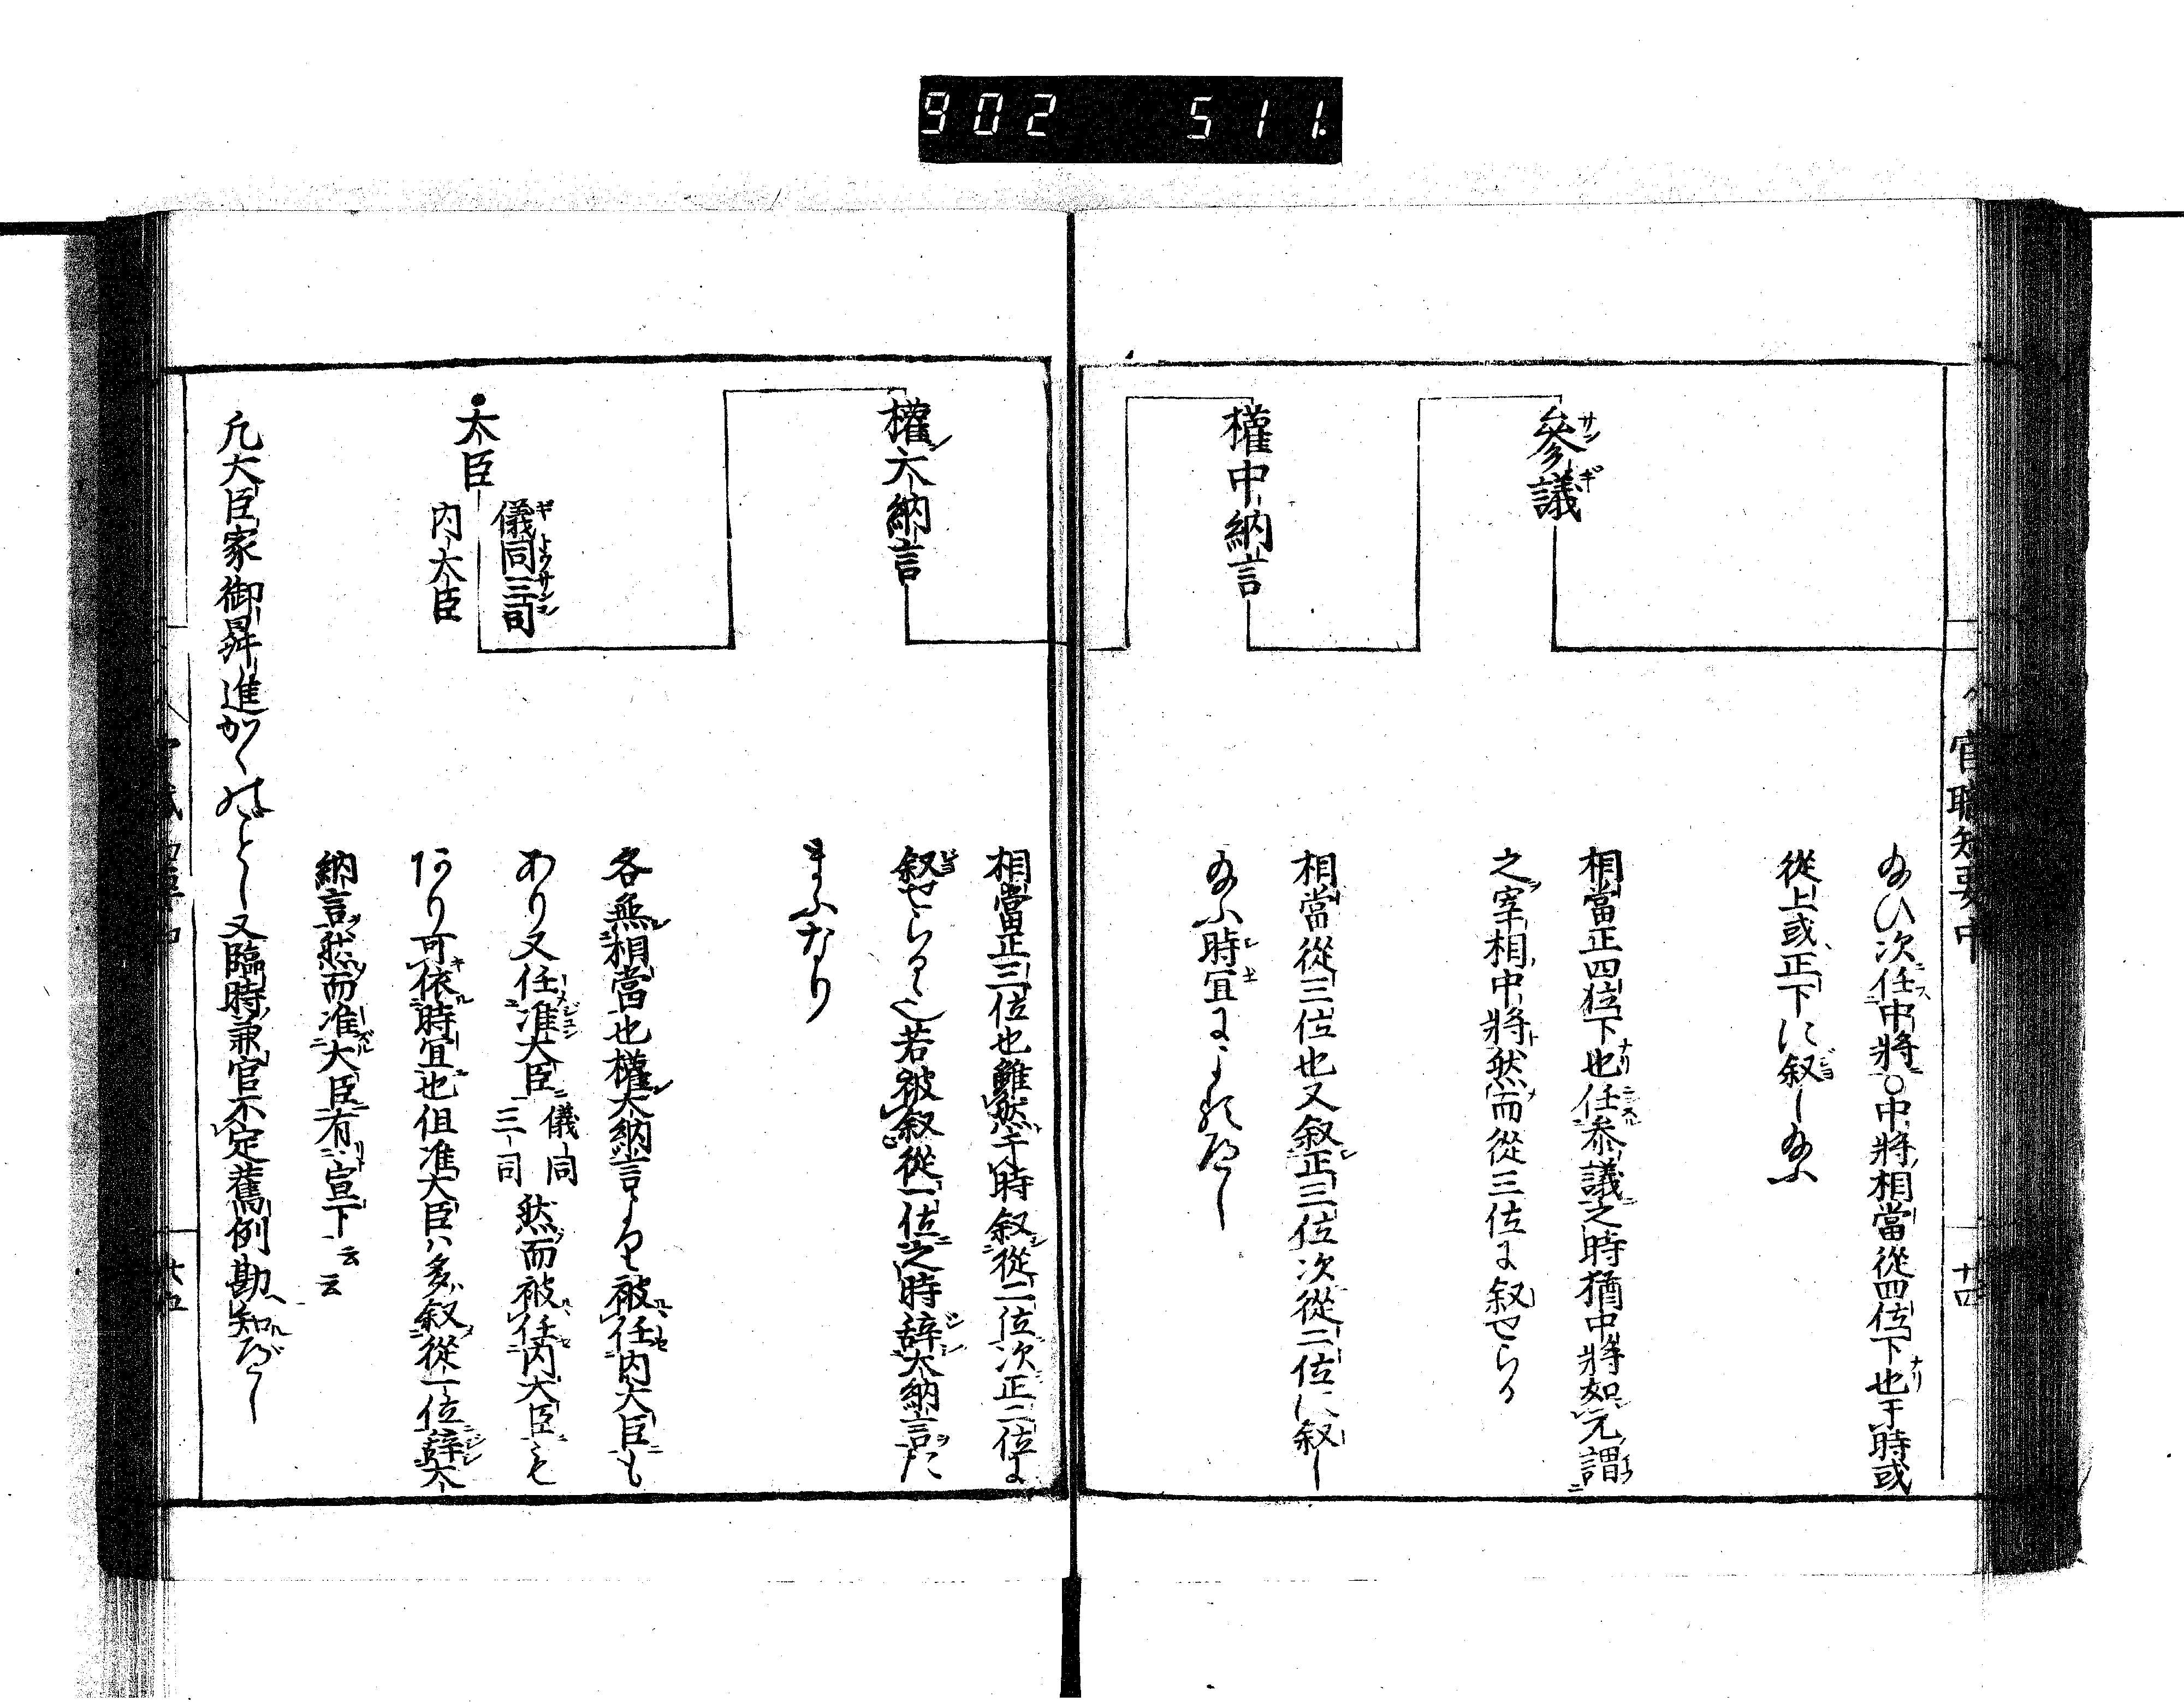 902 511.
官職知要中
給ひ次任中將○中將相當從四位下也于時或
從上或正下に叙し給ふ
參議
相當正四位下也任参議之時猶中將如元謂
之宰相中將然而從三位に叙せらる
權中納言
相當從三位也又叙正三位次從二位に叙し
給ふ時宜によるべし
十四
權大納言
相當正三位也雖然于時叙從二位次正二位に
叙せらるゝ也若被叙從一位之時辞大納言た
まふなり
大臣
儀同三司
内大臣
各無相當也權大納言より被任内大臣も
あり又任准大臣儀同三司然而被任内大臣も
あり可依時宜也但准大臣ハ多叙從一位辞大
納言然而准大臣有宣下云云
凡大臣家御昇進かくのごとし又臨時兼官不定舊例勘知べし